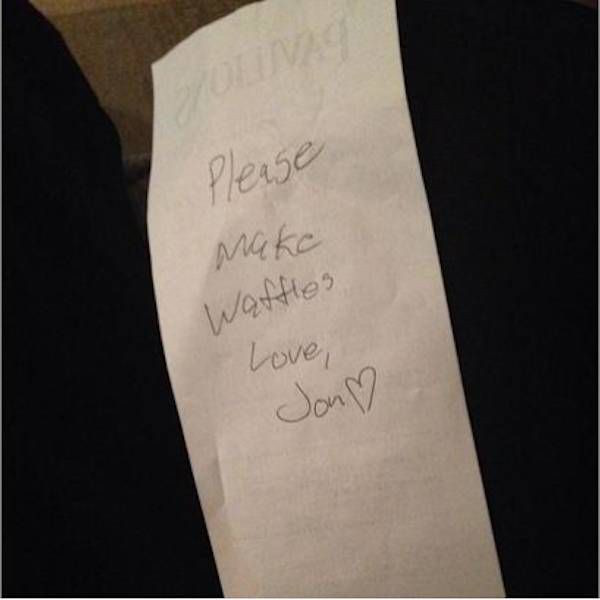 PAVILIONS
Please
Make
Waffles
Love,
Jon♡